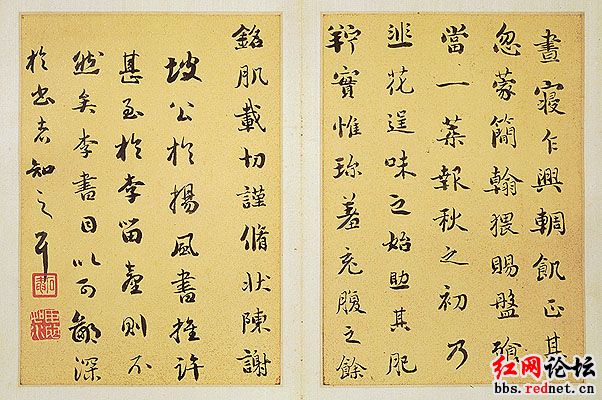 晝寢乍興輖飢正甚
忽蒙簡翰猥賜盤飧
當一葉報秋之初乃
韭花逞味之始助其肥
羜實惟珍羞充腹之餘
銘肌載切謹脩狀陳謝
坡公於揚風書推許
甚至於李留臺則不
然矣李書目以可鄙深
於書者知之耳
红网论坛
bbs.rednet.cn